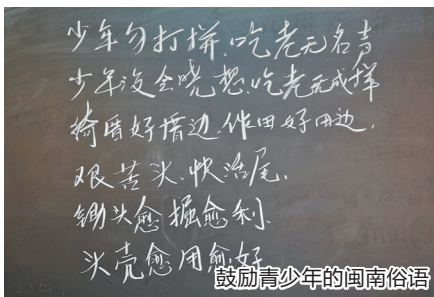 少年勿打拼，吃老无名声
少年没会晓想，吃老无成样
徛厝好厝边，作田好田边，
艰苦头，快活尾，
锄头愈掘愈利，
头壳愈用愈好
鼓励青少年的闽南俗语